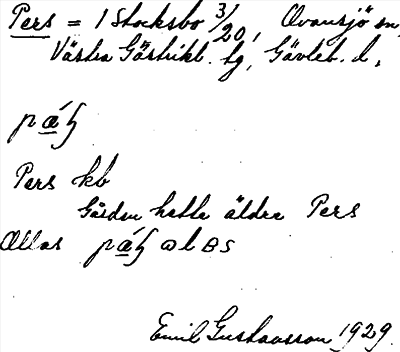 Pers = 1 Stocksbo 3/20, Ovansjö sn,
Västra Gästrikl. tg, Gävleb. l.
Pers kb
Gården hette äldre Pers
Allas
Emil Gustavsson 1929.